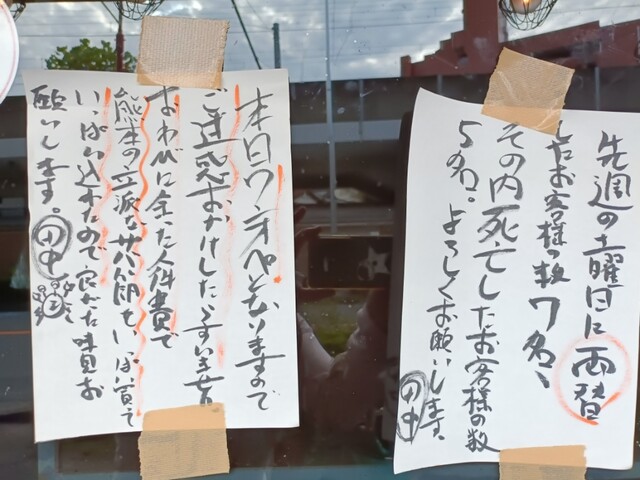 先週の土曜日に両替
したお客様の数7名、
その内死亡したお客様の数
5名。よろしくお願いします。
田中
本日ワンオペとなりますので
ご迷惑おかけしたらすいません
おわびに余った人件費で
熊本の立派なサバ節をいっぱい買て
いっぱい込れたので良かた味見お
願いします。田中